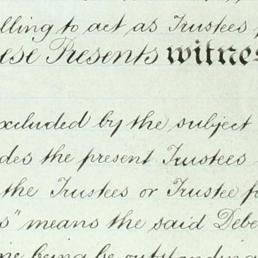 lling to act as Trustees
ese Presents witnes
excluded by the subject
des the present Trustees
the Trustees or Trustee fo
s" means the said Debe
me being be outstanding